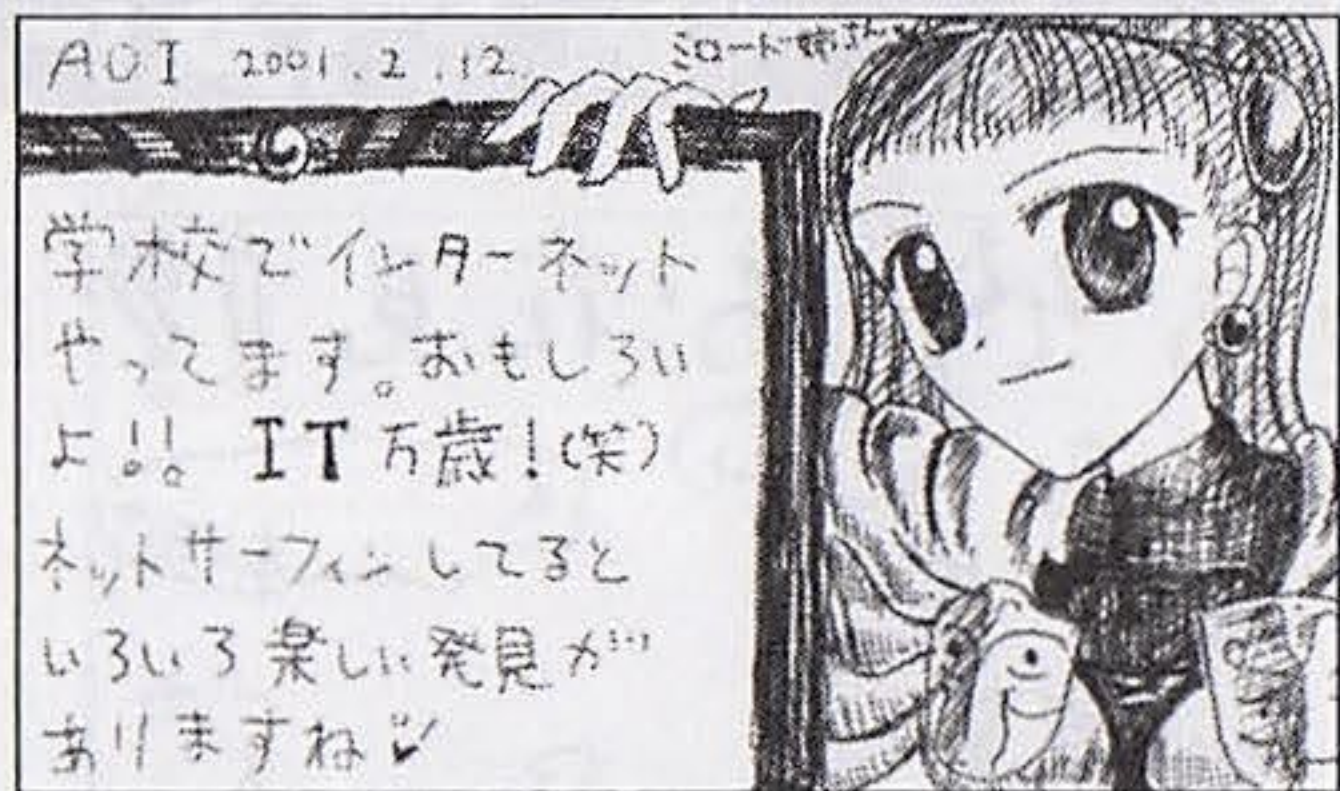 AOI 2001.2.12.
ミロード姉さん♥
学校でインターネット
やってます。おもしろい
よ!! IT万歳!(笑)
ネットサーフィンしてると
いろいろ楽しい発見が
ありますね♥